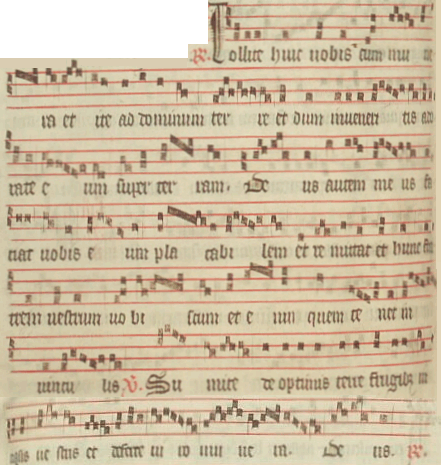 R. Tollite hinc nobis cum mu ne
ra et ite ad dominum ter re et dum inueneri tis ado
rate e um super ter ram. De us autem me us fa
ciat uobis e um pla cabi lem et re mittat et hunc fra
trem uestrum uo bi scum et e um quem te net in
uincu lis V. Su mite de optimis terre frugibus in
et deferte ui ro mu ne ra. De us. R.